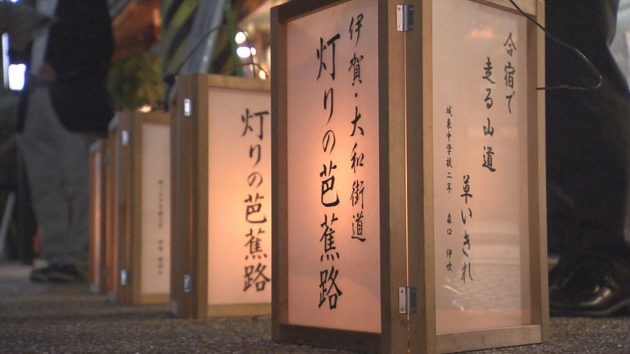 伊賀・大和街道
灯りの芭蕉路
合宿で
走る山道
草いきれ
城東中学校二年 森口 伊吹
灯りの芭蕉路